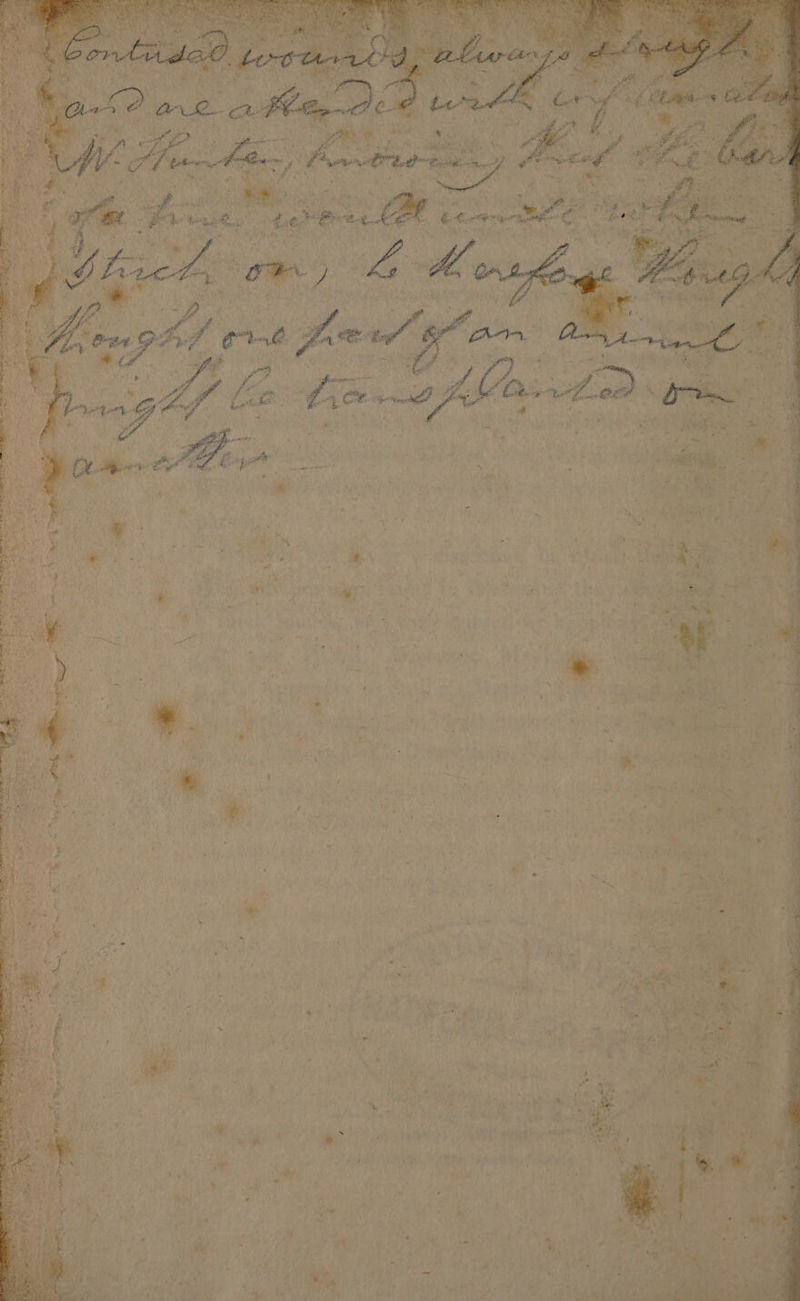 Contused wounds, always slough
and are attended with inflamatio
W. Hunter, knowing that the bark
of a tree would unite when
Struck on, he therefore
thought one part of an Animal
might be transplanted on
another